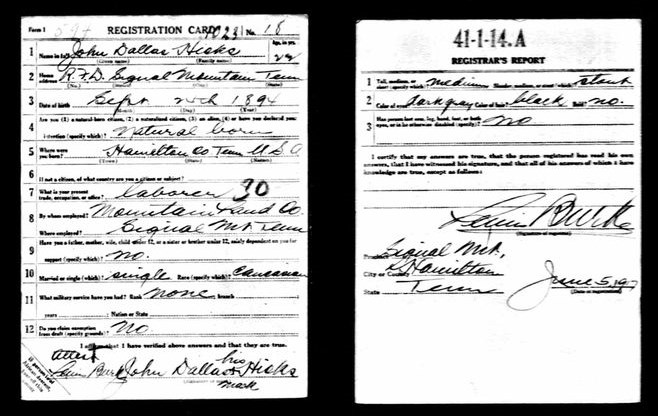 Form 1
REGISTRATION CARD
No. 18
1 Name in full John Dallas Hicks Age, in yrs. 22
(Given name) (Family name)
2 Home address R.F.D. Signal Mountain Tenn
(No.) (Street) (City) (State)
3 Date of birth Sept 1894
(Month) (Day) (Year)
4 Are you (1) a natural-born citizen, (2) a naturalized citizen, (3) an alien, (4) or have you declared your
intention (specify which)? Natural born
5 Where were you born? Hamilton Co Tenn U S A
(Town) (State) (Nation)
6 If not a citizen, of what country are you a citizen or subject?
7 What is your present trade, occupation, or office? laborer 30
8 By whom employed? Mountain Land Co.
Where employed? Signal Mt. Tenn
9 Have you a father, mother, wife, child under 12, or a sister or brother under 12, solely dependent on you for
support (specify which)? no.
10 Married or single (which)? single Race (specify which)? Caucasian
11 What military service have you had? Rank none branch
years Nation or State
12 Do you claim exemption from draft (specify grounds)? No
I affirm that I have verified above answers and that they are true.
attest his
John Dallas Hicks
mark
41-1-14.A
REGISTRAR'S REPORT
1 Tall, medium, or short (specify which)? medium Slender, medium, or stout (which)? stout
2 Color of eyes? dark gray Color of hair? black Bald? no.
3 Has person lost arm, leg, hand, foot, or both
eyes, or is he otherwise disabled (specify)? No
I certify that my answers are true, that the person registered has read his own
answers, that I have witnessed his signature, and that all of his answers of which I have
knowledge are true, except as follows:
Burke
(Signature of registrar)
Precinct Signal Mt.
City or County Hamilton
State Tenn June 5, 1917
(Date of registration)